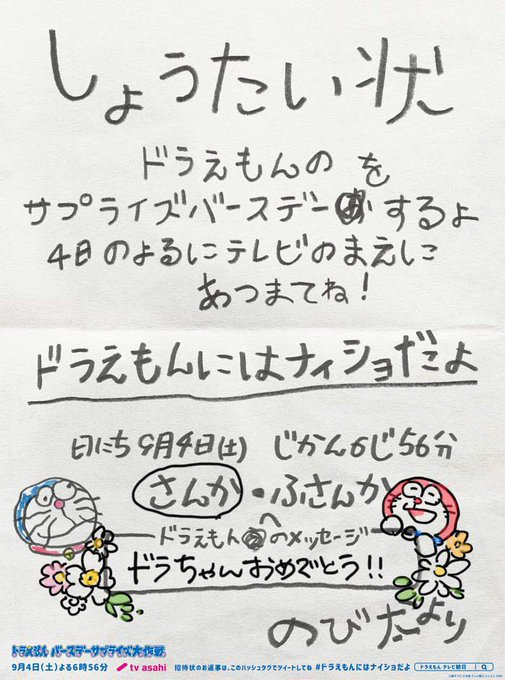 しょうたい状
ドラえもんの を
サプライズバースデー するよ
4日のよるにテレビのまえに
あつまてね!
ドラえもんにはナイショだよ
日にち9月4日(土) じかん6じ56分
さんか・ふさんか
ドラえもんへのメッセージ
ドラちゃんおめでとう!!
のび太より
ドラえもん バースデーサプライズ大作戦
9月4日(土)よる6時56分 tv asahi 招待状のお返事は、このハッシュタグでツイートしてね #ドラえもんにはナイショだよ ドラえもん テレビ朝日